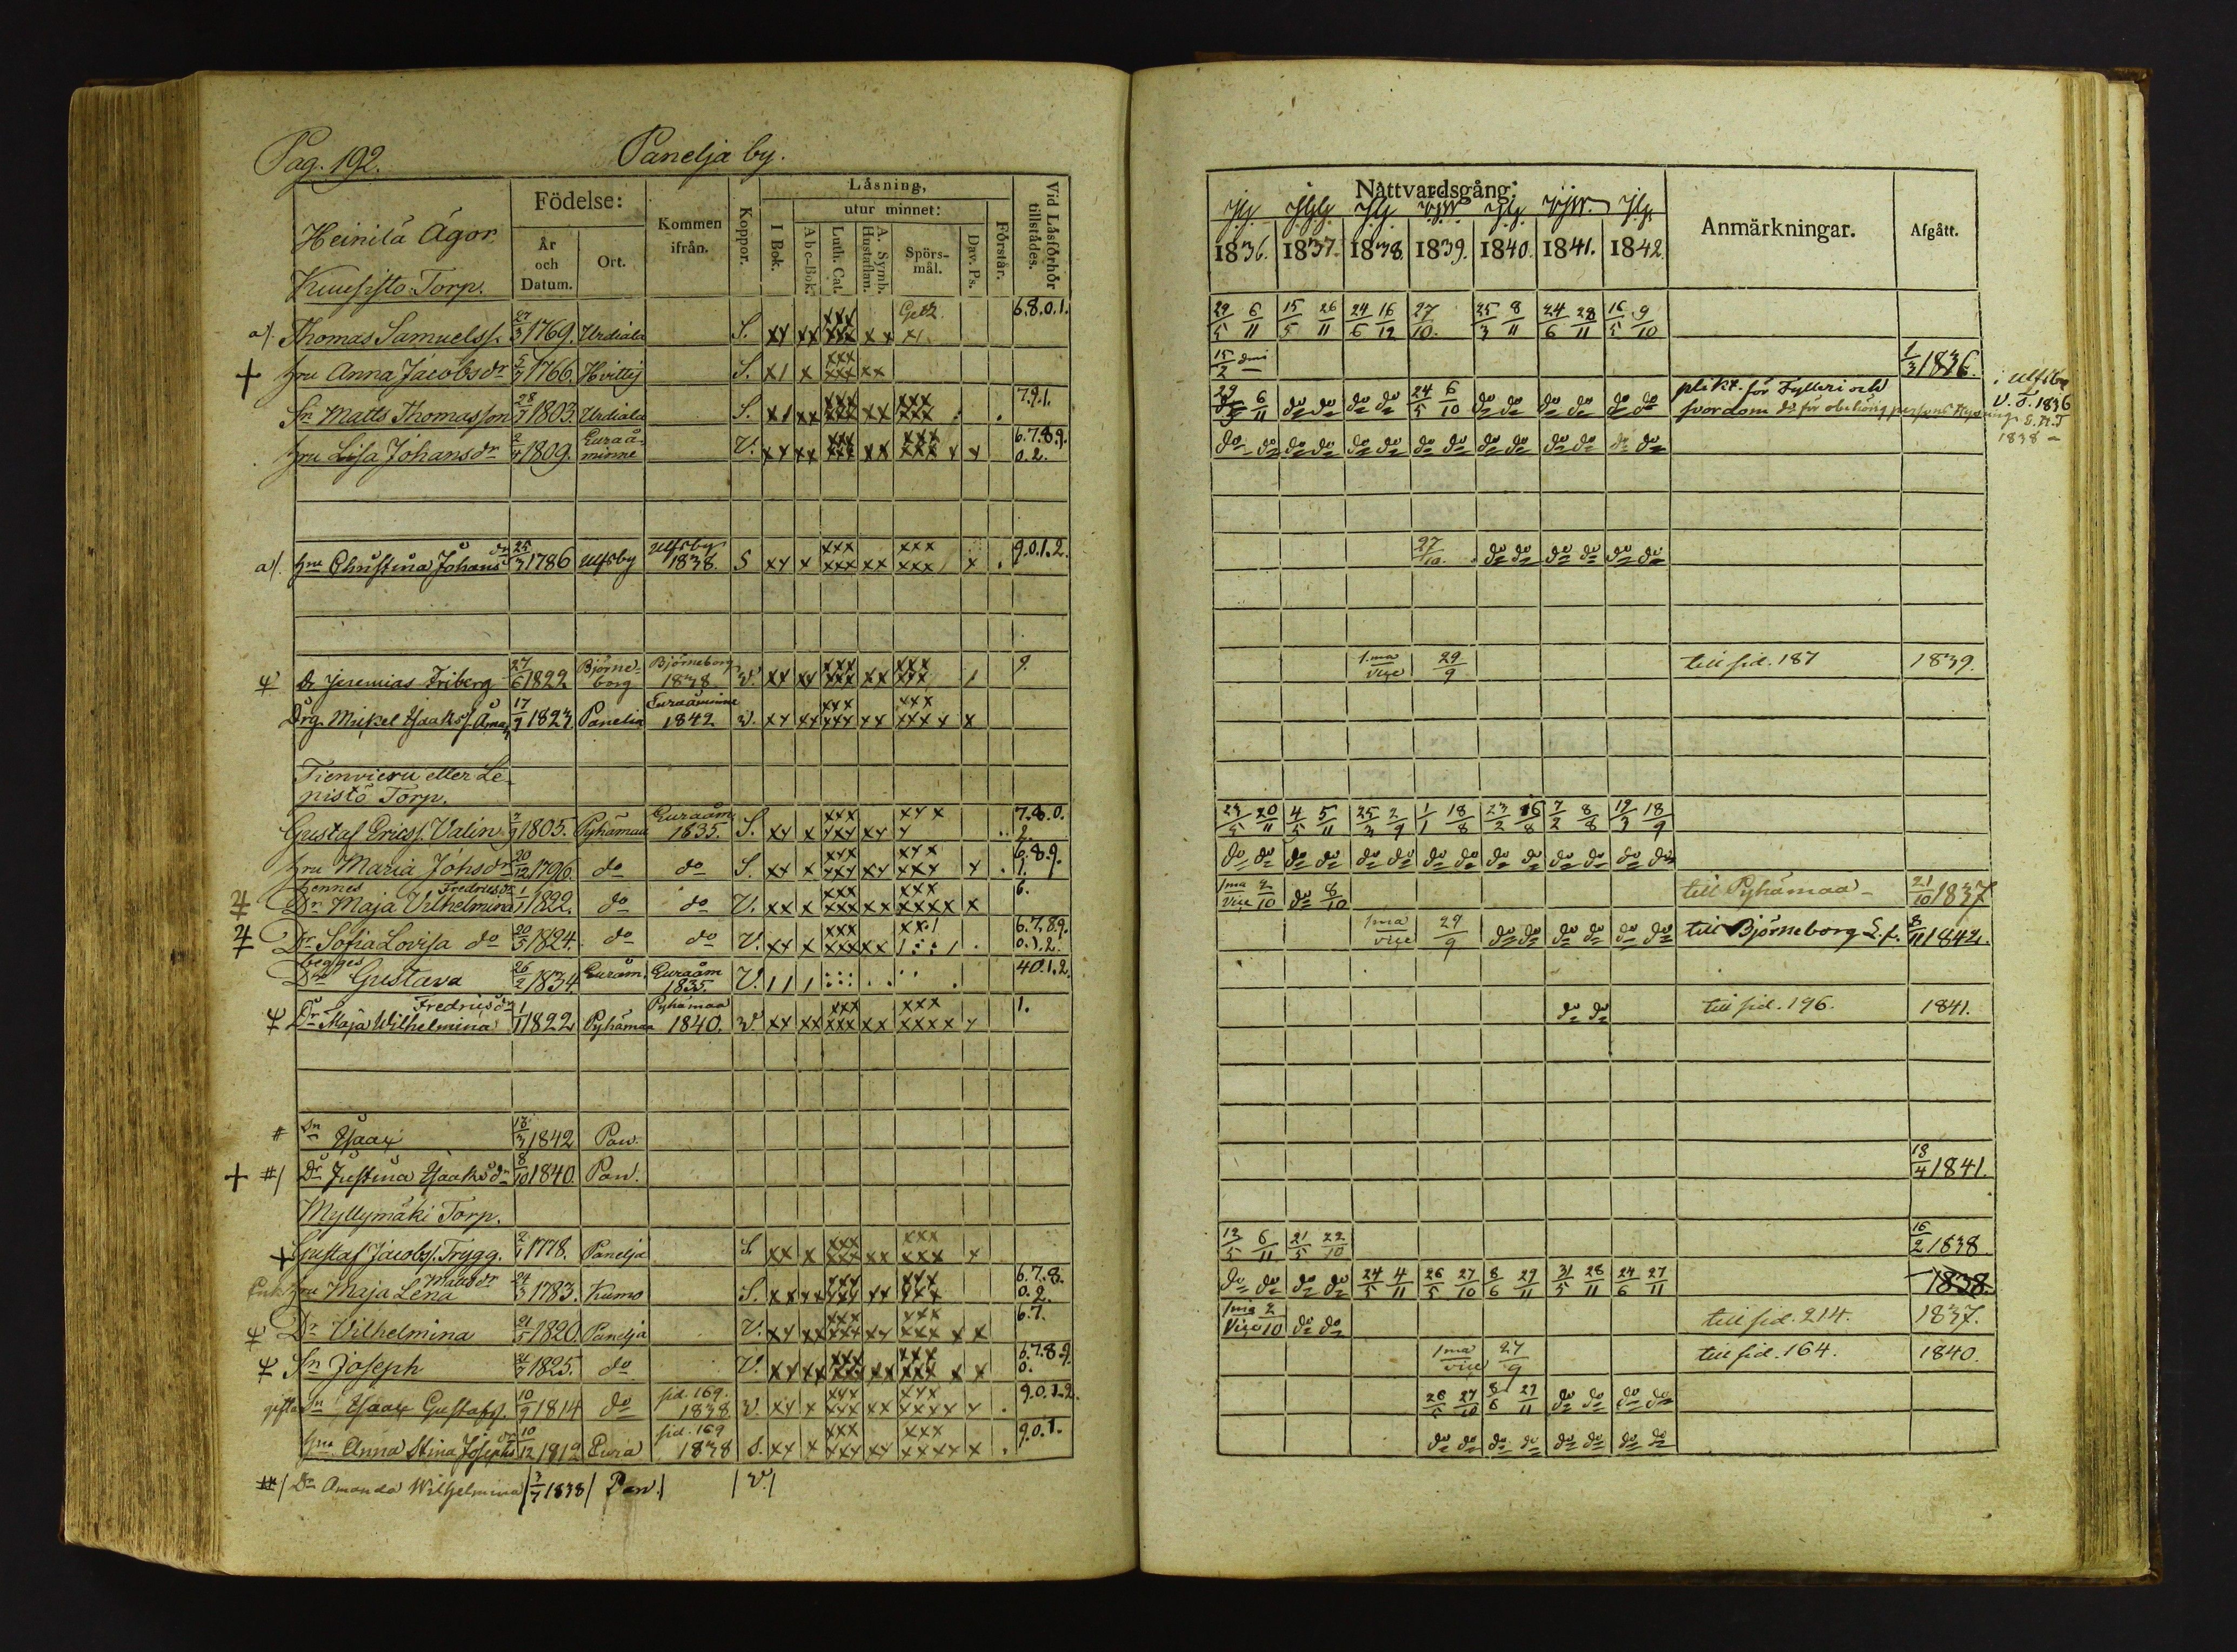 Pag. 192. Panelja by.
Födelse: Kommen ifrån. Koppor. Läsning, utur minnet: Vid Läsförhör tillstådes.
År och Datum. Ort. I Bok. Abc-Bok. Luth. Cat. A. Symb. Hustaflan. Spörs-mål. Dav. Ps. Förstår.
Nattvardsgång: Anmärkningar. Afgått.
1836. 1837. 1838. 1839. 1840. 1841. 1842.
Heinilä Ägor.
Kuusisto Torp.
a/. Thomas Samuelss. 27/3 1769. Urdiala S. xx xx xxx xxx xx x1 6.8.0.1. 29/5 6/11 15/5 26/11 24/6 16/12 27/10. 25/3 8/11 24/6 28/11 16/5 9/10
+ hru Anna Jacobsdr 5/7 1766. Hvittis S. x1 x xxx xxx xx 15/2 1/3 1836.
Sn Matts Thomasson 28/7 1803. Urdiala S. x1 xx xxx xxx xx xxx xxx 7.9.1. 29/5 6/11 do do do do 24/5 6/10 do do do do do do plikt. för Fylleri och svordom
hru Lisa Johansdr 2/4 1809. Euraåminne V. xx xx xxx xxx xx xxx xxx x x 6.7.8.9. 0.2. do do do do do do do do do do do do do do
V. T. 1836
1838
a/. hru Christina Johansdr 25/3 1786 Ulfsby Ulfsby 1838. S xx x xxx xxx xx xxx xxx x . 9.0.1.2. 27/10. do do do do do do
Dr Jeremias Friberg 27/6 1822 Björneborg Björneborg 1838 V. xx xx xxx xxx xx xxx xxx 1 9. 1.ma vice 29/9 till sid. 187 1839.
Drg. Mickel Isaaks. 17/9 1823 Panelia Euraåminne 1842 V. xx xx xxx xxx xx xxx xxx x x
Tienvieru eller Le-
nistö Torp.
Gustaf Ericss. Valin. 2/9 1805. Pyhämaa Euraåm. 1835. S. xx x xxx xxx xx xxx x 7.8.0. 2. 23/5 20/11 4/5 5/11 25/3 2/9 1/1 18/8 23/2 16/8 7/2 8/8 19/3 18/9
hru Maria Johsdr 20/12 1796. do do S. xx x xxx xxx xx xxx xxx x . 6.8.9. 1. do do do do do do do do do do do do do do
hennes Dr Maja Vilhelmina Fredricsdr 1/1 1822. do do V. xx x xxx xxx xx xxx xxxx x 6. 1ma vice 2/10 do 8/10 till Pyhämaa 21/10 1837
Dr Sofia Lovisa do 20/5 1824. do do V. xx x xxx xxx xx 6.7.8.9. 0.1.2. 1ma vice 29/9 do do do do do do till Björneborg 8/11 1842.
begges Dr Gustava 26/2 1834. Euraåm. Euraåm 1835. V. 1 1 1 40.1.2.
Dr Maja Wilhelmina Fredricsdr 1/1 1822 Pyhämaa Pyhämaa 1840. V. xx xx xxx xxx xx xxx xxxx x 1. do do till sid. 196. 1841.
# Sn Isaax 18/3 1842 Pan.
+ #/ Dr Justina Isaaksdr 8/10 1840. Pan. 18/4 1841.
Myllymäki Torp.
+ Gustaf Jacobs. Trygg. 2/1 1778. Panelja S xx x xxx xxx xx xxx xxx x 13/5 6/11 21/5 22/10 16/2 1838
Enk. hru Maja Lena Mattsdr 24/3 1783. Kumo S. xx xx xxx xxx xx xxx xxx 6.7.8. 0.2. do do do do 24/5 4/11 26/5 27/10 8/6 29/11 31/5 28/11 24/6 27/11 1838.
Dr Vilhelmina 21/5 1820. Panelja V. xx xx xxx xxx xx xxx xxx x x 6.7. 1ma vice 2/10 do do till sid. 214. 1837.
Sn Joseph 21/3 1825. do V. xx xx xxx xxx xx xxx xxx x x 6.7.8.9. 0. 1ma vice 27/9 till sid. 164. 1840.
gifta Sn Isaax Gustafss. 10/9 1814 do sid. 169. 1838 V. xx x xxx xxx xx xxx xxxx x . 9.0.1.2. 26/5 27/10 8/6 29/11 do do do do
hru Anna Stina Josephsdr 10/12 1819 Eura sid. 169 1838 S. xx x xxx xxx xx xxx xxxx x . 9.0.1. do do do do do do do do
#/ Dr Amanda Wilhelmina 3/7 1838 Pan. V.